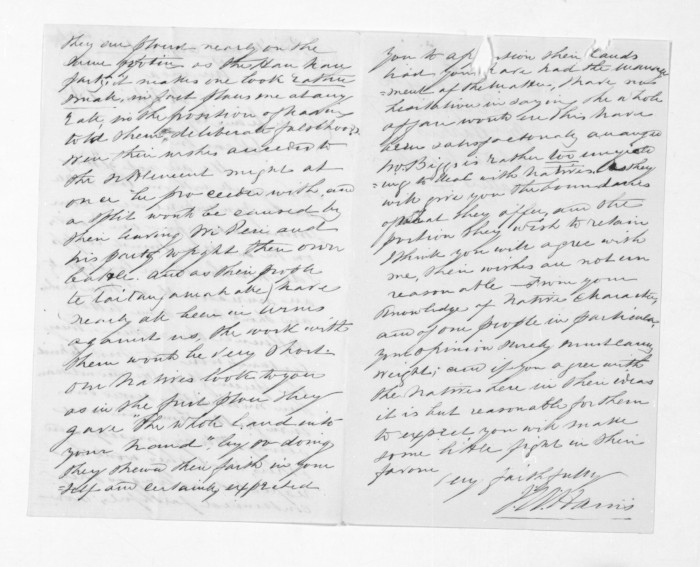 they are placed nearly on the
same footing as the Hau Hau
party it makes one look rather
small, in fact places one at any
rate, in the position of having
told them deliberate falsehoods
Were their wishes acceded to
the settlement might at
once be proceeded with, and
a split would be caused by
their leaving and
his party to fight their own
battle. And as their people
have
nearly all been in arms
against us, the work with
them would be very short
our Natives look to you
as in the first place they
gave "the whole land into
your hand", by so doing
they shewed their faith in your
=self and certainly expected
you to apportion their lands
had you have had the manage
=ment of the matter, I have no
hesitation in saying the whole
affair would ere this have
been satisfactorily arranged
Mr Biggs is rather too
to deal with Natives. They
will give you the boundaries
of what they offer, and the
portion they wish to retain
I think you will agree with
me, their wishes are not un
reasonable — From your
knowledge of Native character,
and of our people in particular,
your opinion surely must carry
weight; and if you agree with
the Natives here in their ideas
it is but reasonable for them
to expect you will make
some little fight in their
favor
very faithfully
Harris